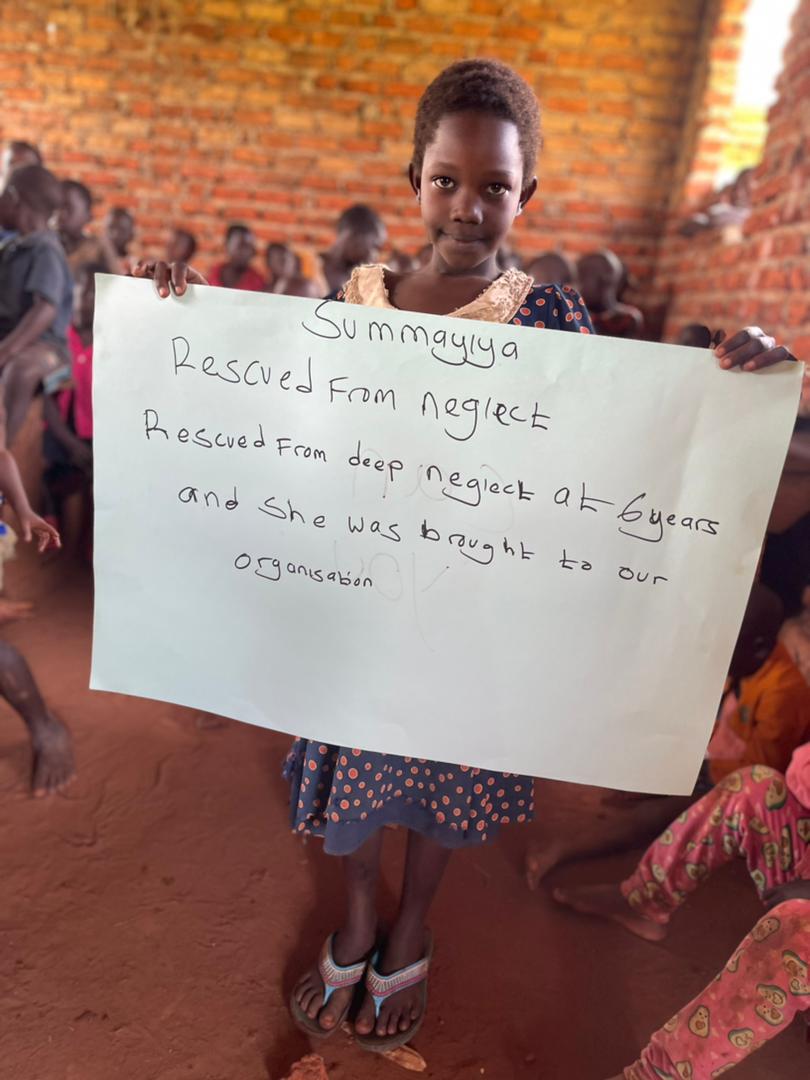 Summayiya
Rescued From neglect
Rescued From deep neglect at 6years
and She was brought to our
organisation